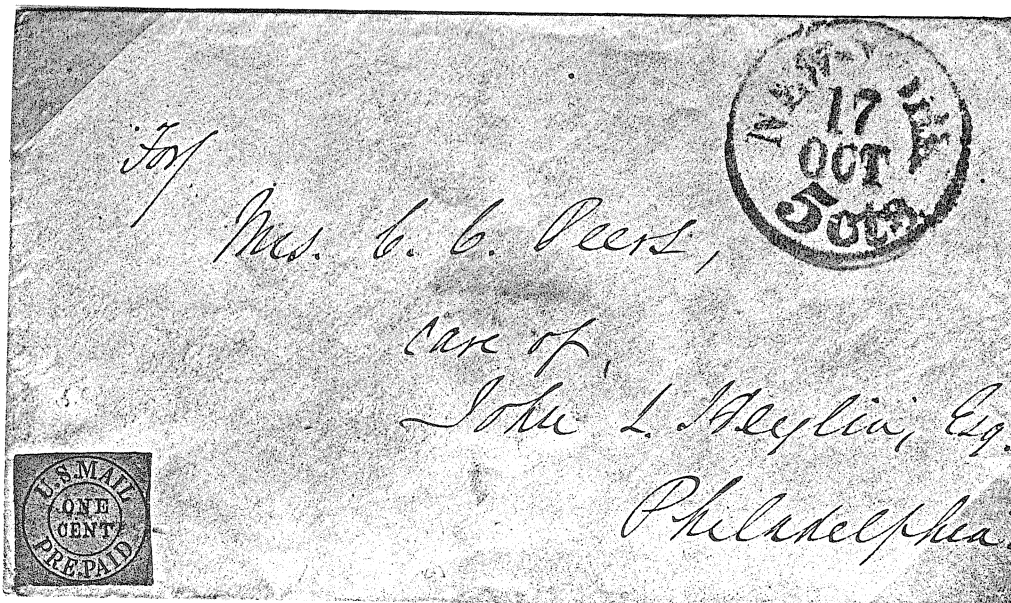 NEW-YORK
17
OCT
5 cts.
For
Mrs. C. C. Peers,
care of,
John L. Heylin, Esq.
Philadelphia.
U.S. MAIL
ONE
CENT
PREPAID